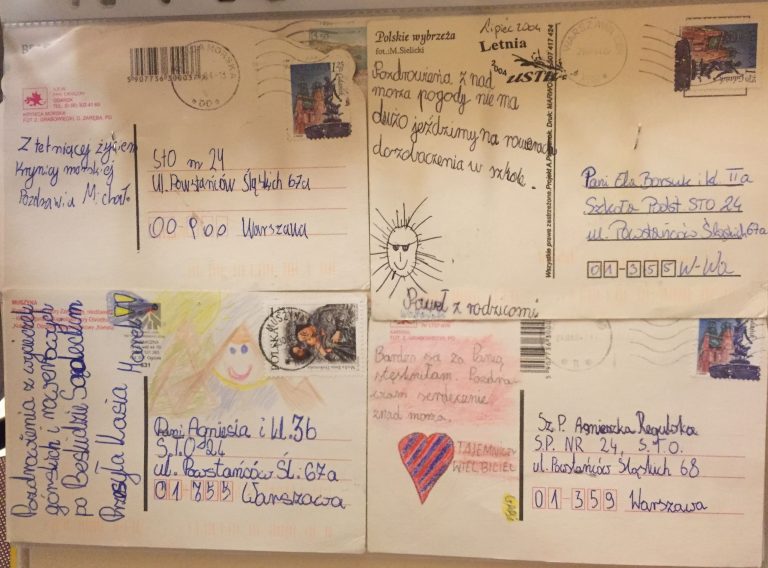 5907736300037
GDAŃSK
KRYNICA MORSKA
Z tętniącej życiem
Krynicy morskiej
Pozdrawia Michał.
STO nr 24
Ul. Powstańców Śląskich 67a
Warszawa
Polskie wybrzeża
fot.: M. Sielicki
Lipiec 2004
Letnia
2004
USTKA
Pozdrowienia z nad
morza pogody nie ma
dużo jeździmy na rowerach
do zobaczenia w szkole.
Paweł z rodzicami
Wszystkie prawa zastrzeżone.
Pani Ela Borsuk i kl IIa
Szkoła Podst STO 24
ul. Powstańców Śląskich 67a
01-355 W-Wa
MUSZYNA
Pozdrowienia z wycieczek
górskich i rowerowych
po Beskidzie Sądeckim
Przesyła Kasia
631
MUSZYNA
POLSKA
Pani Agniesia i kl. 3b
S.T.O 24
ul. Powstańców Śl. 67a
01-355 Warszawa
Bardzo się za Panią
stęskniłam. Pozdra-
wiam serdecznie
znad morza.
TAJEMNICZY
WIELBICIEL
Sz. P. Agnieszka Regulska
S.P. NR 24, S.T.O.
ul. Powstańców Śląskich 68
01-359 Warszawa